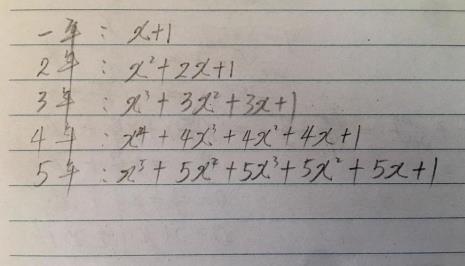 一年 : x+1
2年 : x²+2x+1
3年 : x³+3x²+3x+1
4年 : x⁴+4x³+4x²+4x+1
5年 : x⁵+5x⁴+5x³+5x²+5x+1